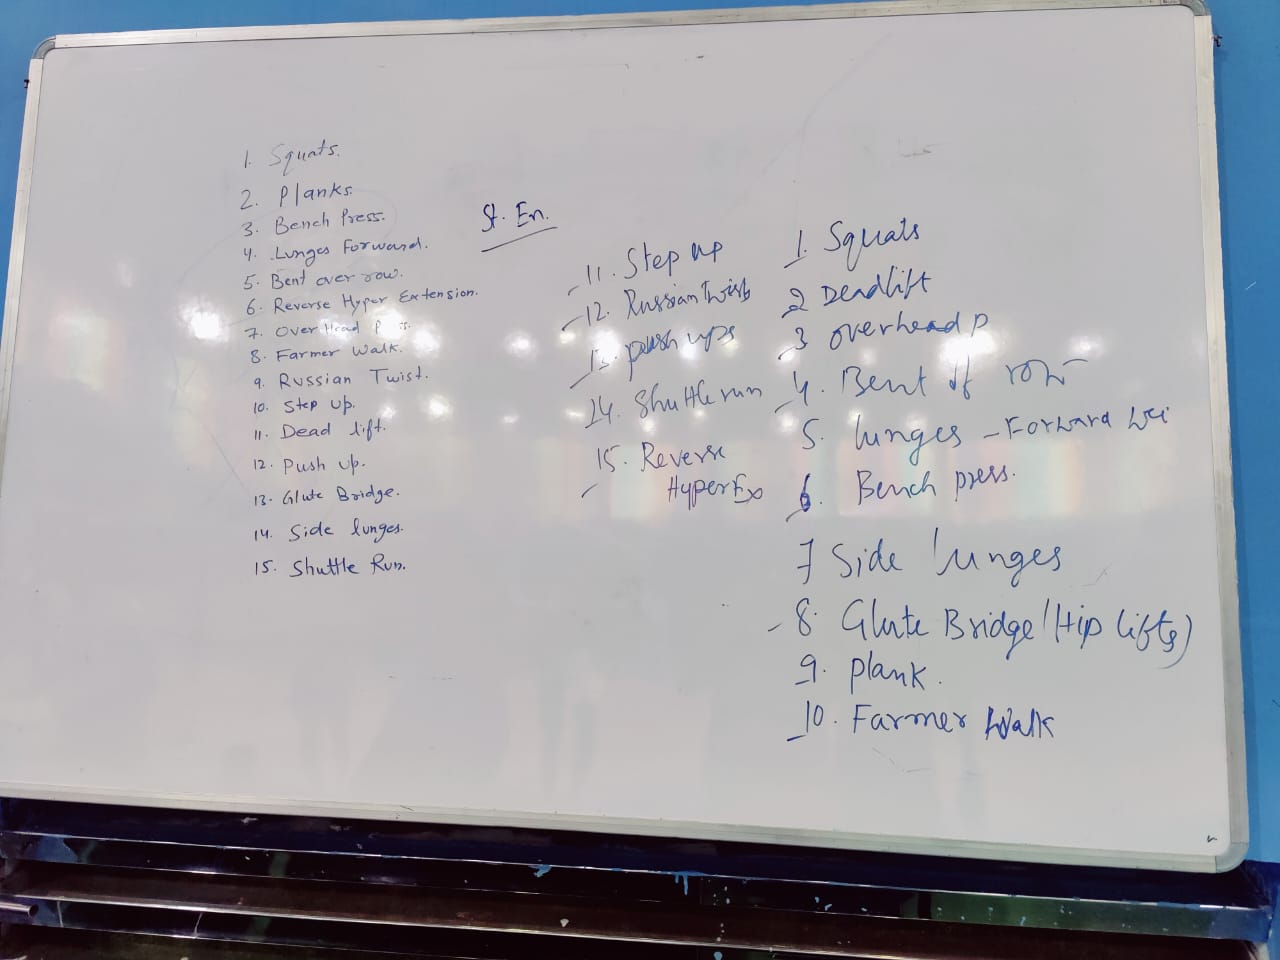 1. Squats.
2. Planks.
3. Bench Press.
4. Lunges Forward.
5. Bent over row.
6. Reverse Hyper Extension.
7. Over Head
8. Farmer Walk.
9. Russian Twist.
10. Step Up.
11. Dead lift.
12. Push up.
13. Glute Bridge.
14. Side lunges.
15. Shuttle Run.
St. En.
11. Step up
12. Russian Twist
13. push ups
14. Shuttle run
15. Reverse
Hyper Ex
1. Squats
2 Deadlift
3 overhead p
4. Bent row
5. lunges - Forward
6. Bench press.
7 Side lunges
8. Glute Bridge (Hip lifts)
9. plank.
10. Farmer Walk